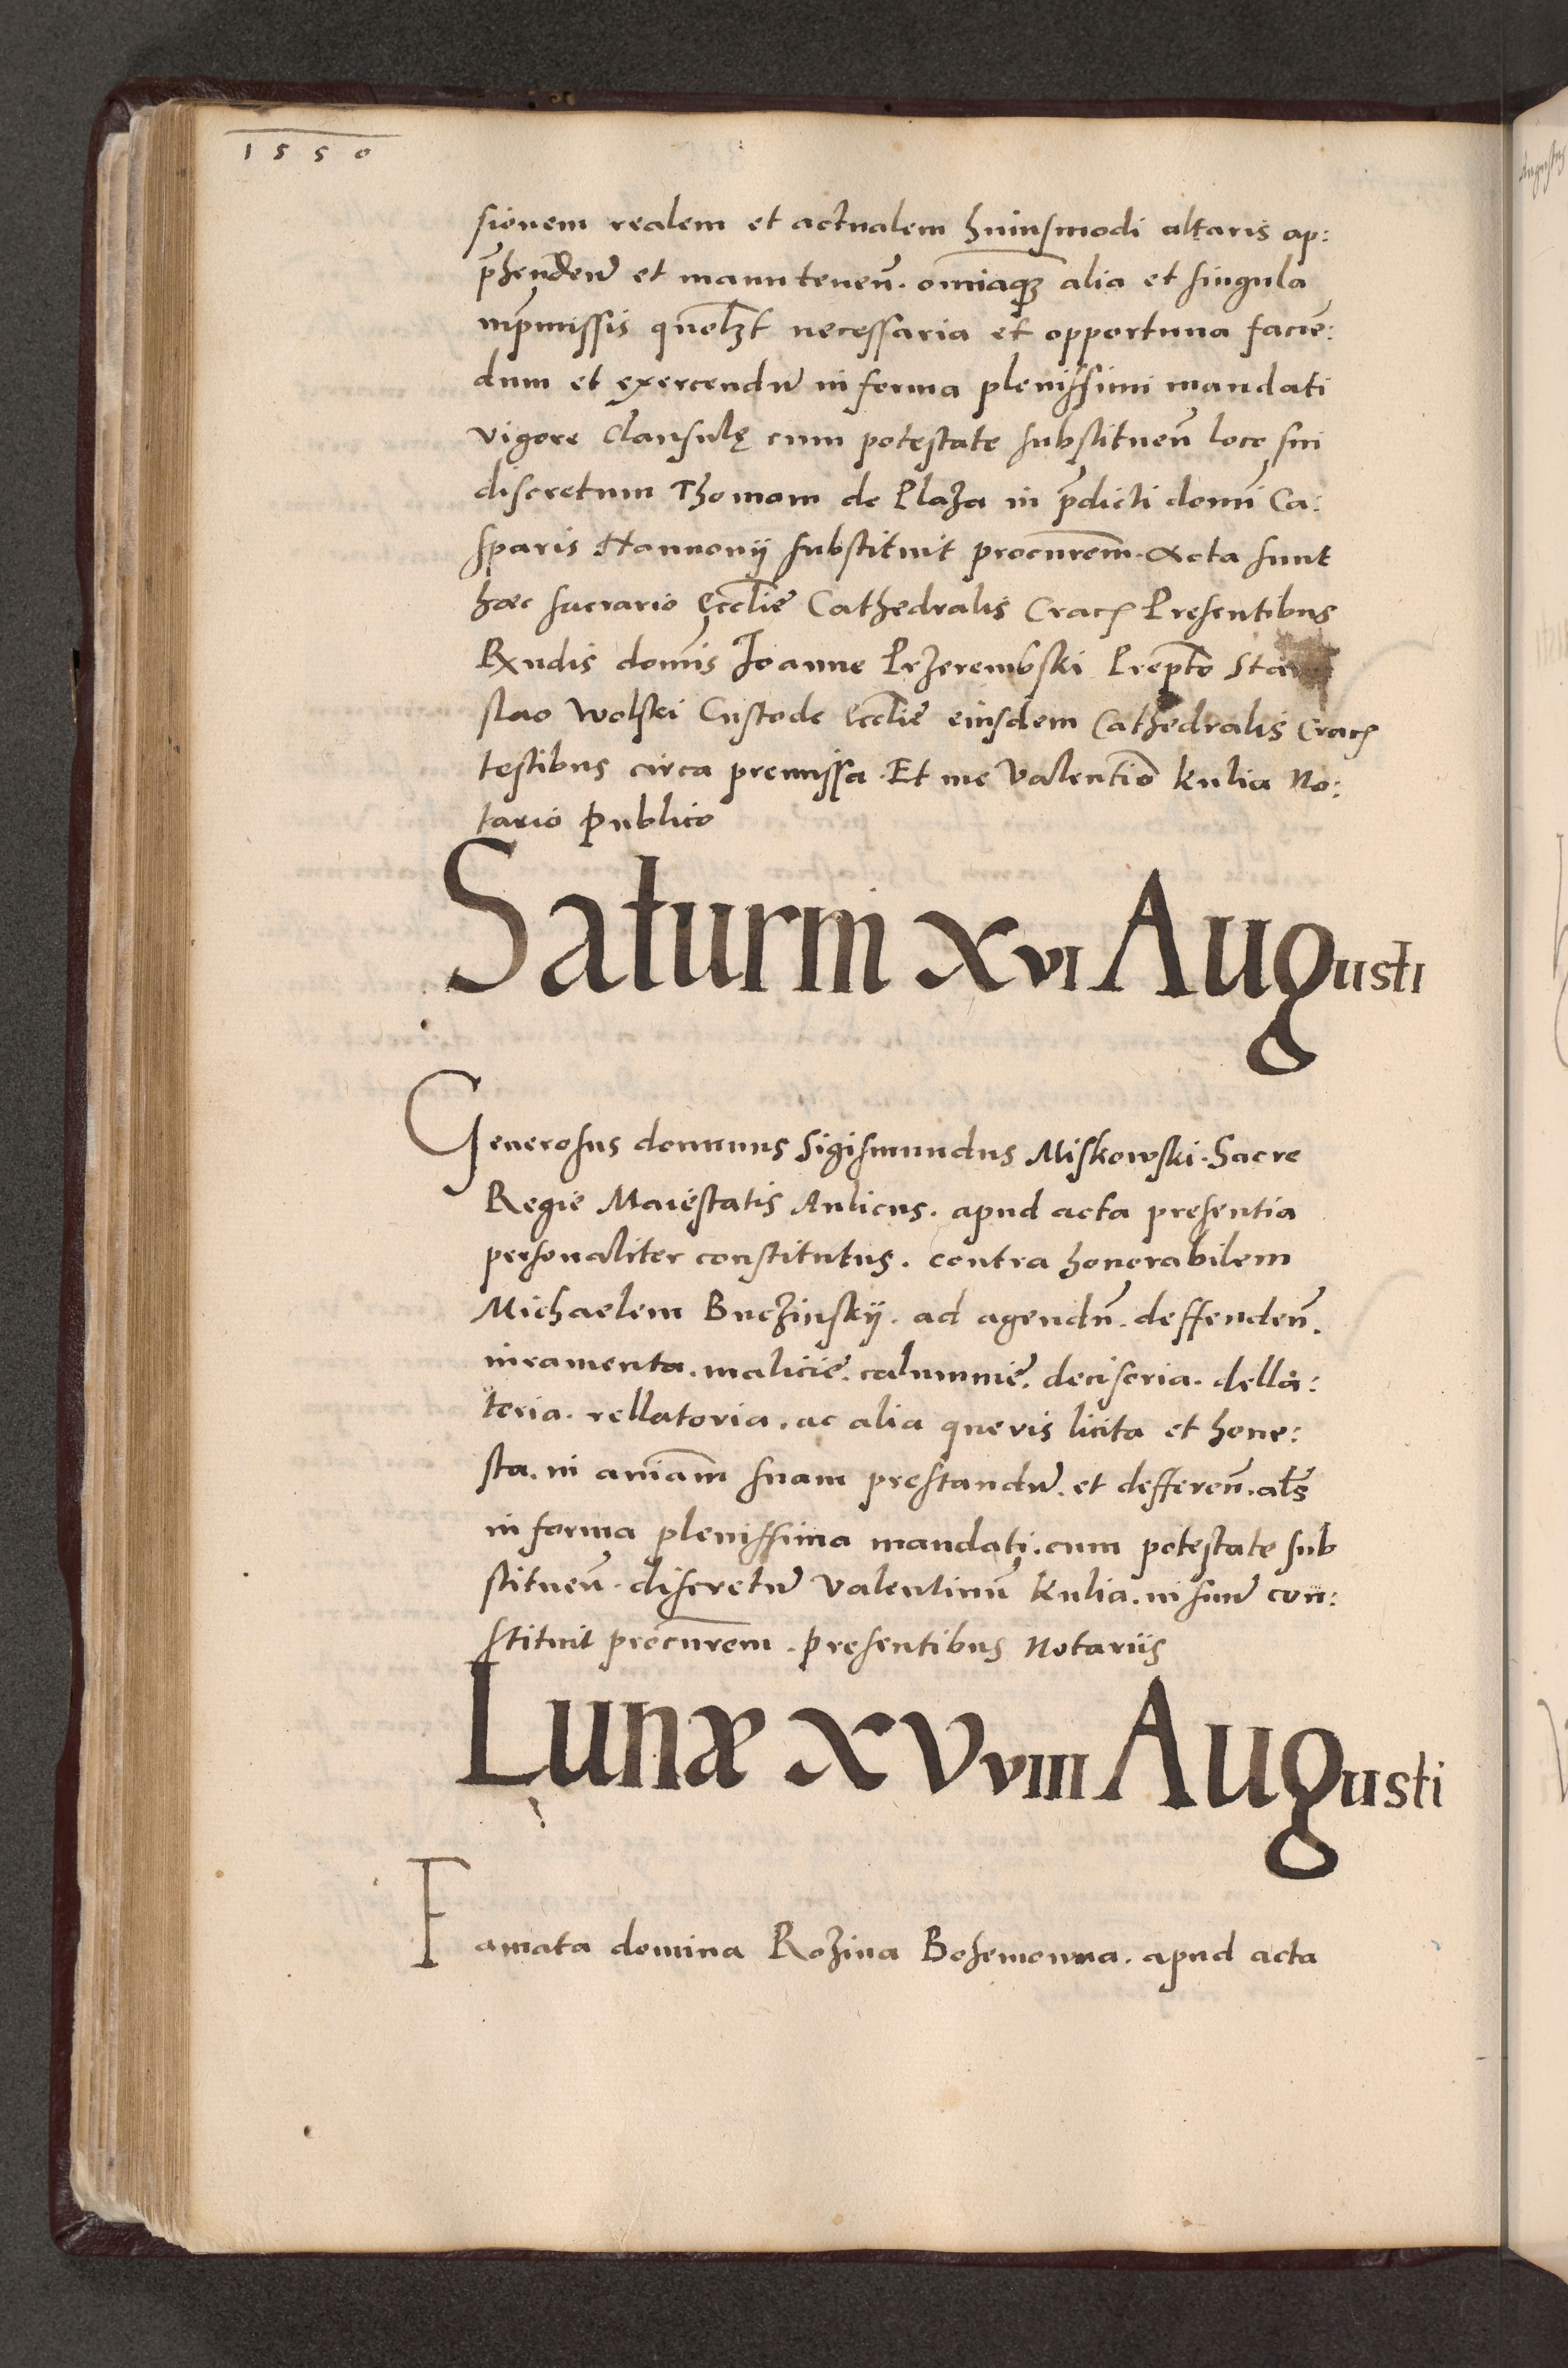 1550
sionem realem et actualem huiusmodi altaris ap:
p̄hendeñ et manuteneñ. om̄iaqꝫ alia et singula
inp̄missis quolꝫt necessaria et opportuna facie̅:
dum et exercendū in forma plenissimi mandati
vigore Clausulę cum potestate substitueñ loco sui
discretum Thomam de Plaza in p̄dicti domi̅ Ca:
sparis Hannonij substituit procu̅rem. Acta sunt
haec sacrario Ęccl̅ie Cathedralis Crac̅ Presentibus
Rx̅ndis domi̅s Ioanne Przerembski Prep̅to Stani
slao Wolski Custode Eccl̅ie eiusdem Cathedralis Crac̅
testibus circa premissa. Et me Valenti̅o Kulia No:
tario publico
Saturni XVI Augusti
Generosus dominus Sigismundus Miskowski. Sacre
Regie Maiestatis Aulicus. apud acta presentia
personaliter constitutus. contra honorabilem
Michaelem Buczinskij. ad agendu̅. deffendeñ.
iuramenta. malicie. calumnie. decisoria. della:
toria. rellatoria. ac alia quevis licita et hone:
sta. in ani̅am suam prestandū. et deffereñ. al̅s
in forma plenissima mandati. cum potestate sub
stitueñ. discretū Valentinu̅ Kulia. in suū con:
stituit procu̅rem. presentibus Notariis
Lunæ XVVIII Augusti
Famata domina Rozina Bohemowna. apud acta